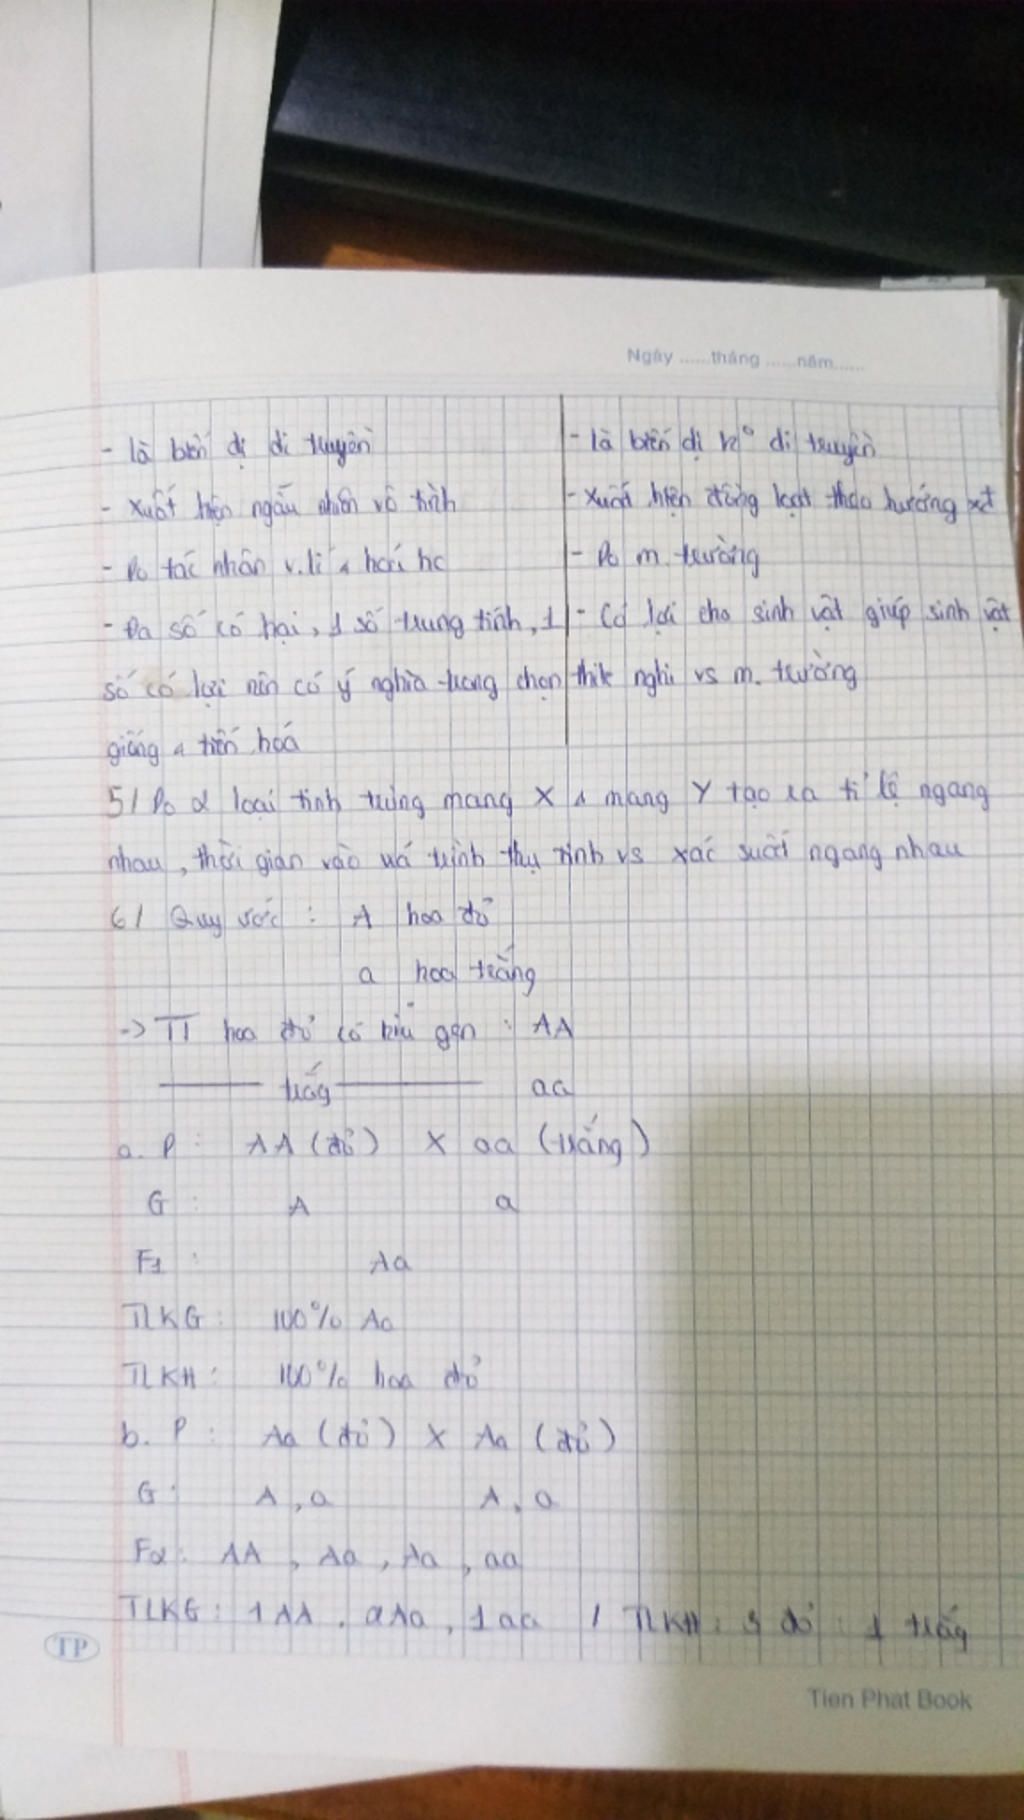 Ngày ......tháng ......năm......
- là biến dị di truyền
- là biến dị k° di truyền
- xuất hiện ngẫu nhiên vô tình
- xuất hiện đồng loạt theo hướng xđ
- Do tác nhân v.lí hoá hc
- Do m. trường
- Đa số có hại, 1 số trung tính, 1
- Có lợi cho sinh vật giúp sinh vật
số có lợi nên có ý nghĩa trong chọn
thik nghi vs m. trường
giống tiến hoá
5/ Do 2 loại tinh trùng mang X mang Y tạo ra tỉ lệ ngang
nhau, thời gian vào wá trình thụ tinh vs xác suất ngang nhau
6/ Quy ước : A hoa đỏ
a hoa trắng
-> TT hoa đỏ có kiểu gen : AA
trắg aa
a. P : AA (đỏ) X aa (trắng)
G : A a
F1 : Aa
TLKG : 100% Aa
TLKH : 100% hoa đỏ
b. P : Aa (đỏ) X Aa (đỏ)
G : A, a A, a
F2 : AA, Aa, Aa, aa
TLKG : 1 AA, 2Aa, 1 aa / TLKH : 3 đỏ : 1 trắg
TP
Tien Phat Book